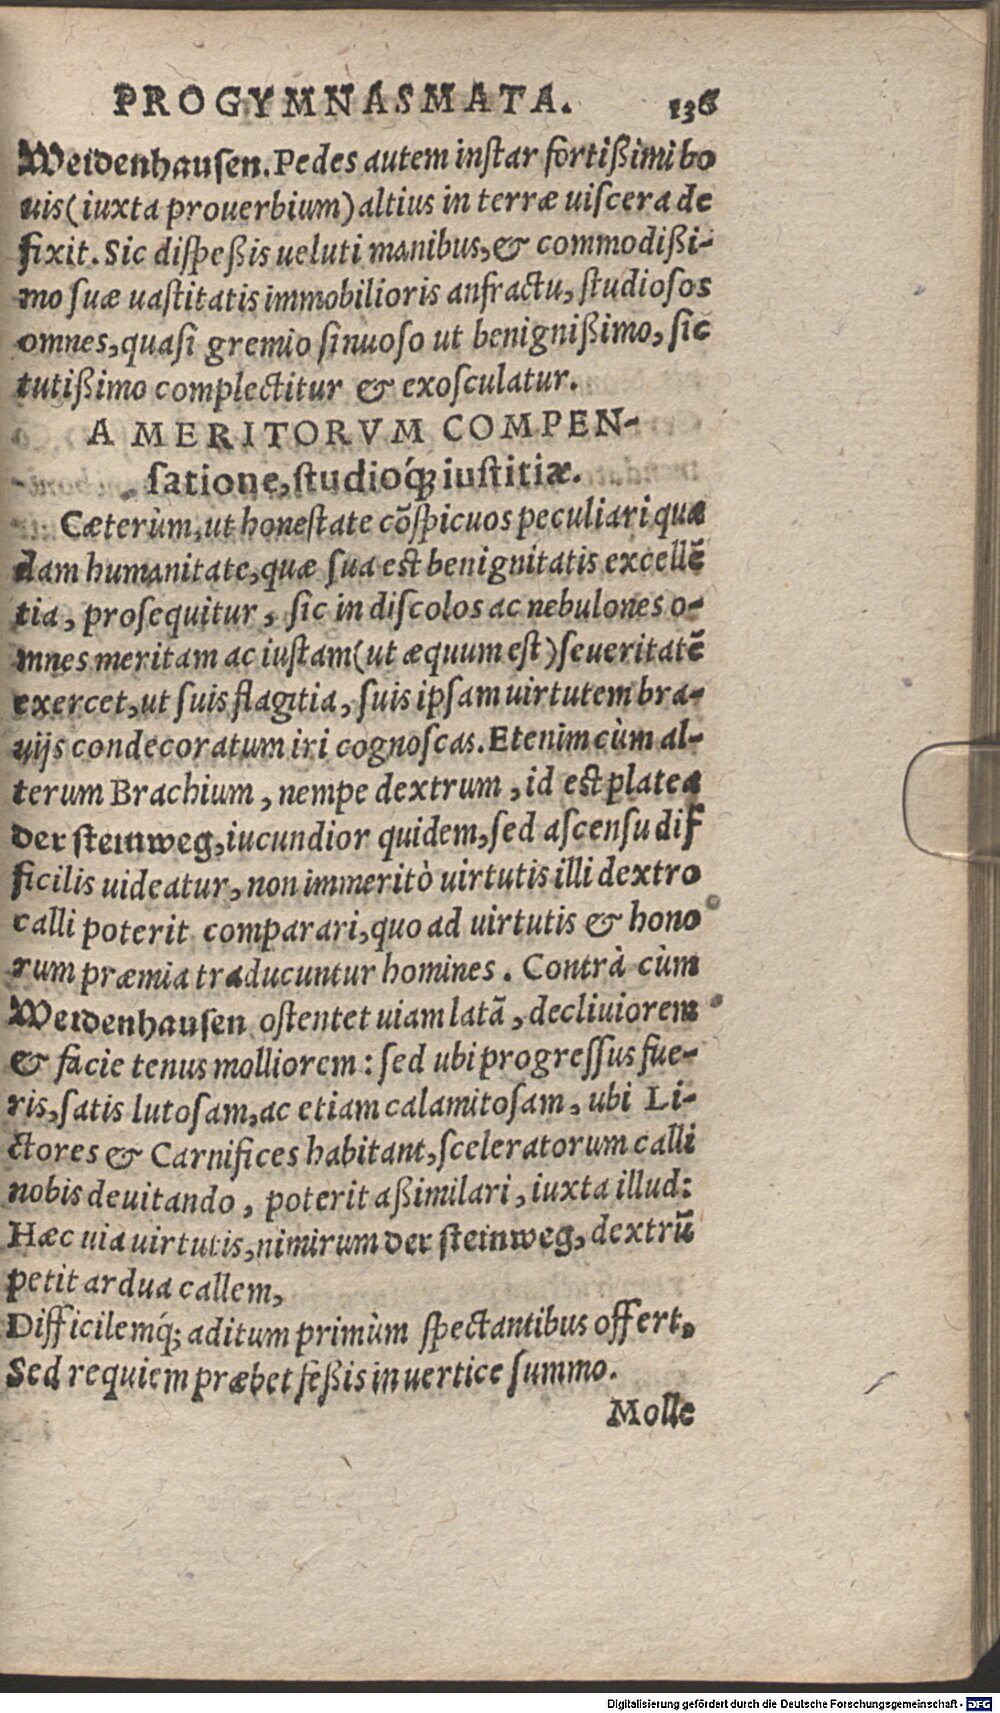 PROGYMNASMATA. 136
Weidenhauſen. Pedes autem inſtar fortißimi bo
uis (iuxta prouerbium) altius in terræ uiſcera de
fixit. Sic diſpeßis ueluti manibus, & commodißi-
mo ſuæ uaſtitatis immobilioris anfractu, ſtudioſos
omnes, quaſi gremio ſinuoſo ut benignißimo, ſic
tutißimo complectitur & exoſculatur.
A MERITORVM COMPEN-
ſatione, ſtudioq́; iuſtitiæ.
Cæterùm, ut honeſtate cōſpicuos peculiari quæ
dam humanitate, quæ ſua eſt benignitatis excellē
tia, proſequitur, ſic in diſcolos ac nebulones o-
mnes meritam ac iuſtam (ut æquum eſt) ſeueritatē
exercet, ut ſuis flagitia, ſuis ipſam uirtutem bra-
uijs condecoratum iri cognoſcas. Etenim cùm al-
terum Brachium, nempe dextrum, id eſt platea
der ſteinweg, iucundior quidem, ſed aſcenſu dif
ficilis uideatur, non immeritò uirtutis illi dextro
calli poterit comparari, quo ad uirtutis & hono
rum præmia traducuntur homines. Contrà cùm
Weidenhauſen oſtentet uiam latā, decliuiorem
& facie tenus molliorem: ſed ubi progreſſus fue-
ris, ſatis lutoſam, ac etiam calamitoſam, ubi Li-
ctores & Carnifices habitant, ſceleratorum calli
nobis deuitando, poterit aßimilari, iuxta illud:
Hæc uia uirtutis, nimirum der ſteinweg, dextrū
petit ardua callem,
Difficilemq́; aditum primùm ſpectantibus offert,
Sed requiem præbet feßis in uertice ſummo.
Molle
Digitalisierung gefördert durch die Deutsche Forschungsgemeinschaft - DFG